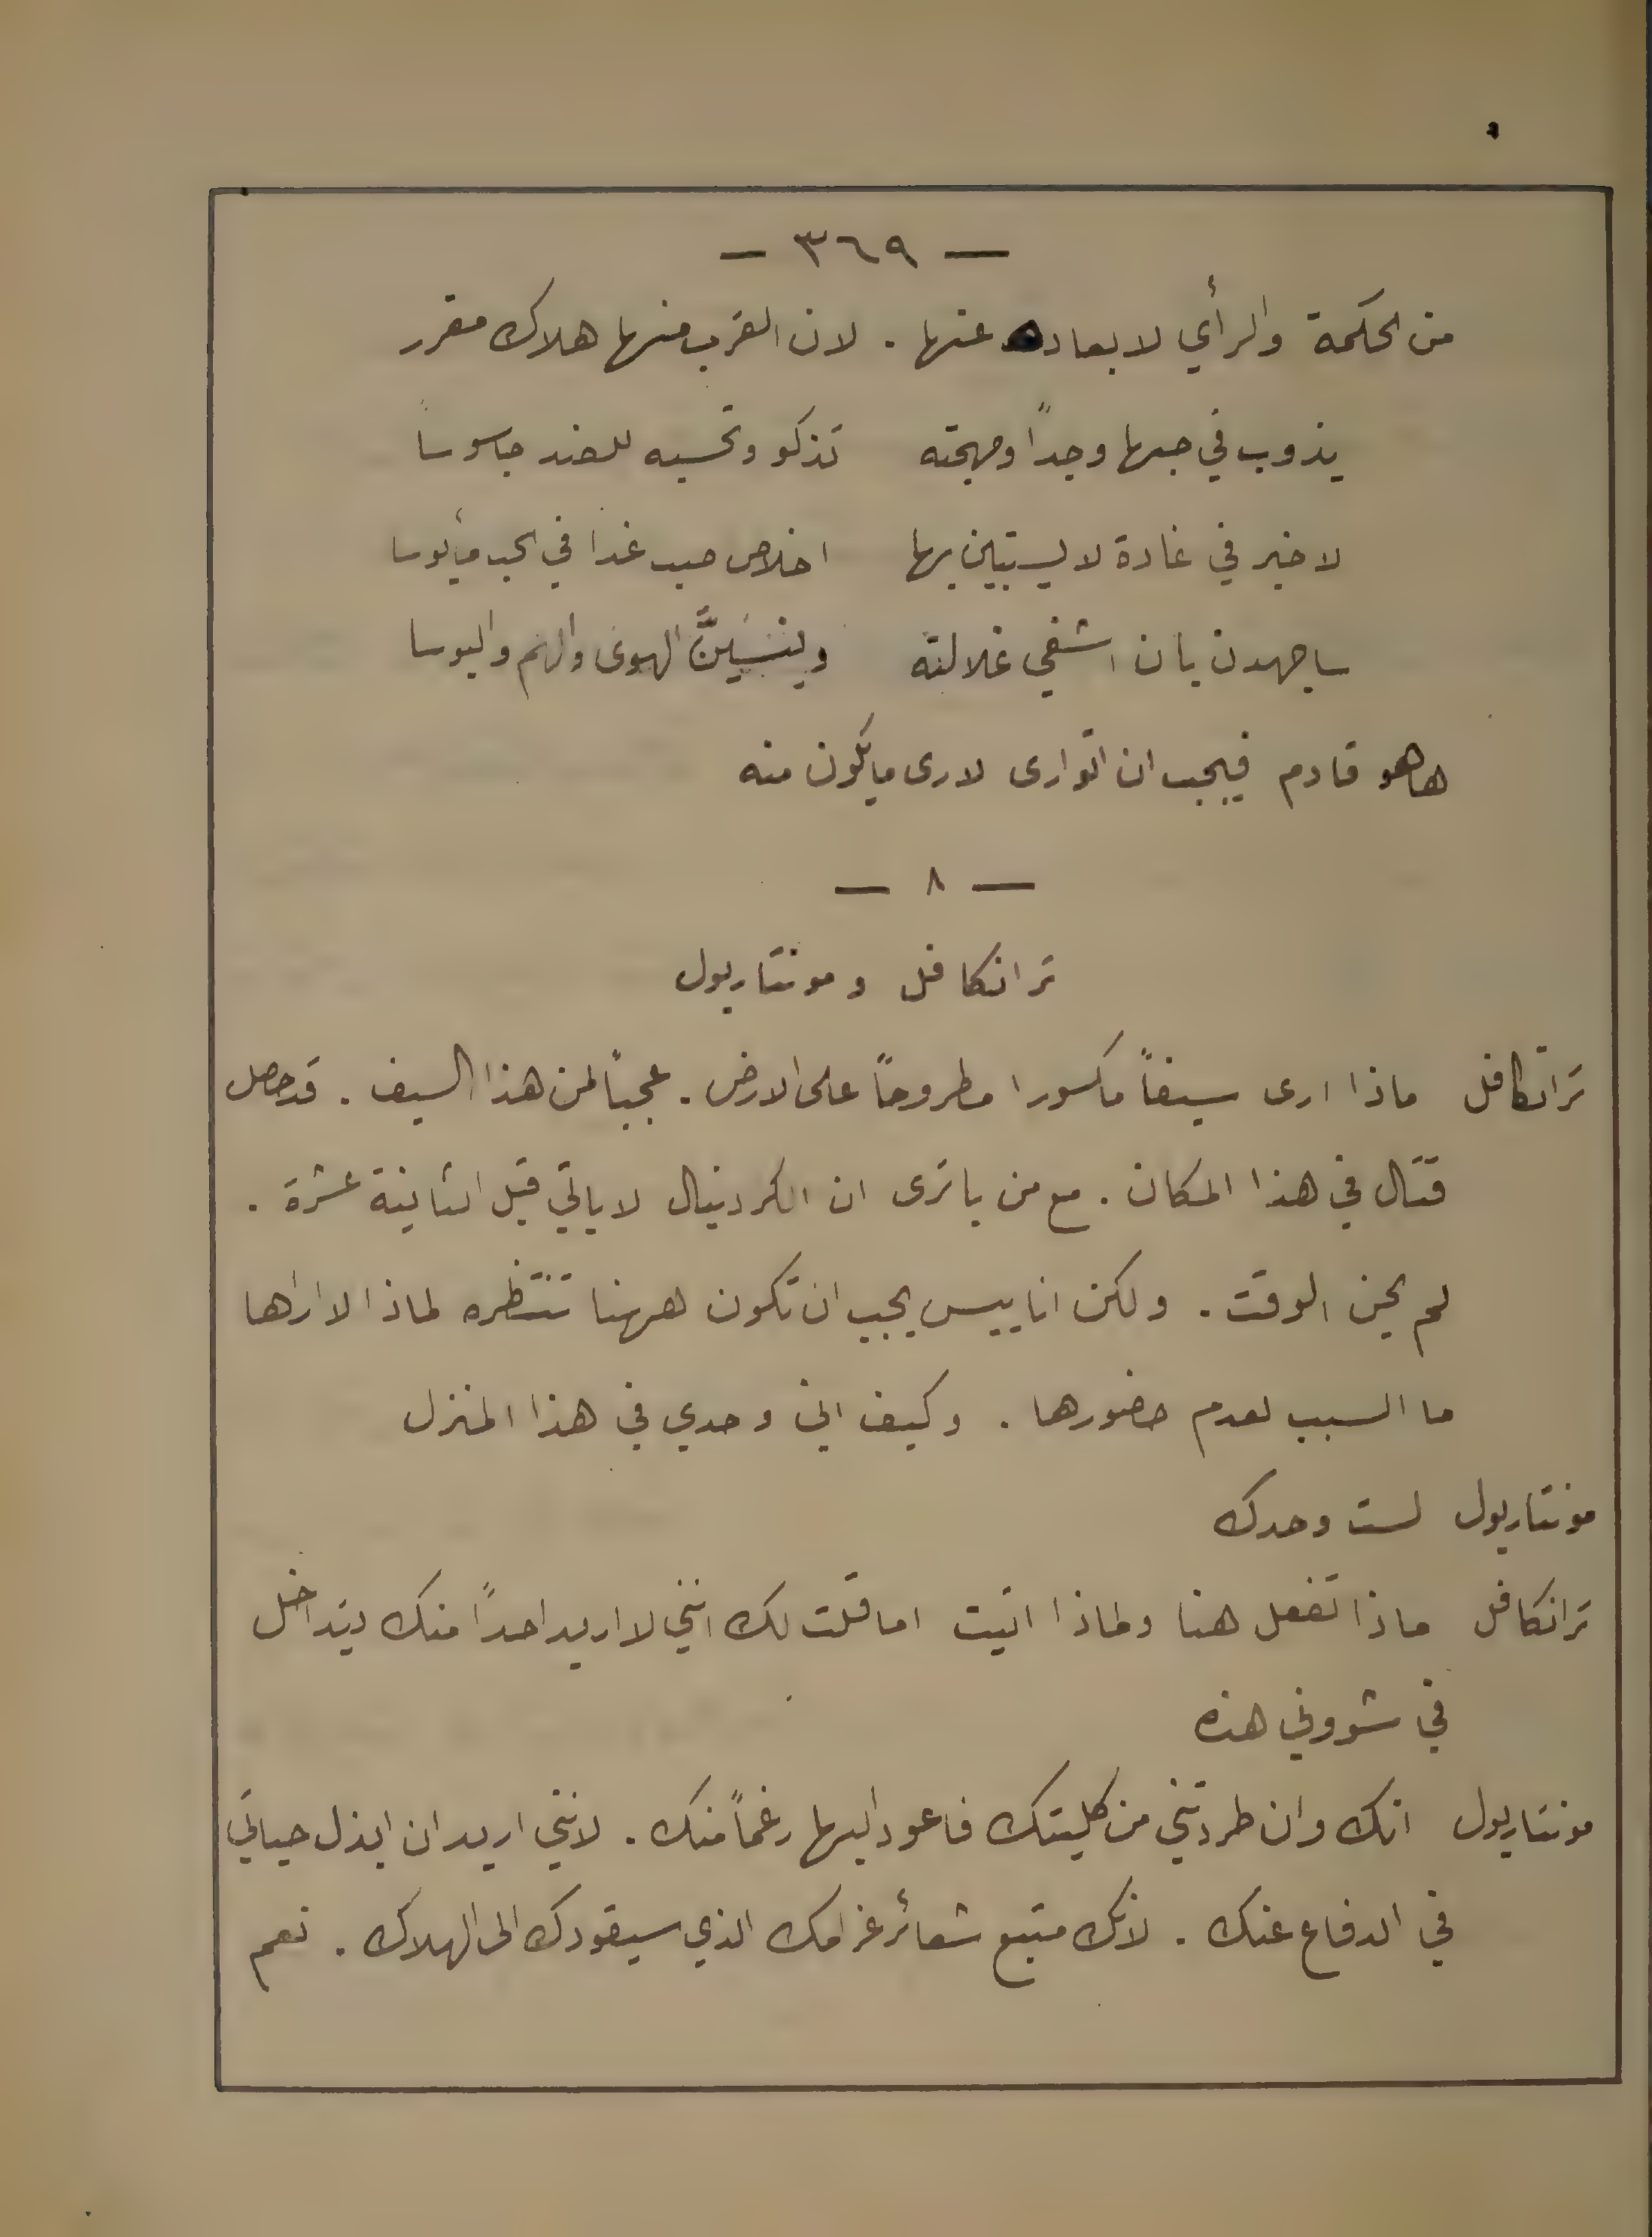 — ٣٦٩ —
من الحكمة والرأي لابعاده عنها . لان القرب منها هلاك مقرر
يذوب في حبها وجداً ومهجته تذكو وتحسبه للضد جاسوسا
لا خير في غادة لا يستبين بها اخلاص صب غدا في الحب مأيوسا
ساجهدن بان اشفي غلالته وينسَينَّ الهوى والهم والبوسا
هاهو قادم فيجب ان اتوارى لارى ما يكون منه
— ٨ —
ترانكافل و مونتاريول
ترانكافل ماذا ارى سيفاً مكسورا مطروحاً على الارض . عجباً لمن هذا السيف . قد حصل
قتال في هذا المكان . مع من يا ترى ان الكردينال لا ياتي قبل الثانية عشرة .
لم يحن الوقت . ولكن اناييس يجب ان تكون ههنا تنتظره لماذا لا اراها
ما السبب لعدم حضورها . وكيف اني وحدي في هذا المنزل
مونتاريول لست وحدك
ترانكافل ماذا تفعل هنا ولماذا اتيت اما قلت لك انني لا اريد احداً منك يتداخل
في شووني هذه
مونتاريول انك وان طردتني من كليتك فاعود اليها رغماً منك . لانني اريد ان ابذل حياتي
في الدفاع عنك . لانك متبع شعائر غرامك الذي سيقودك الى الهلاك . نعم